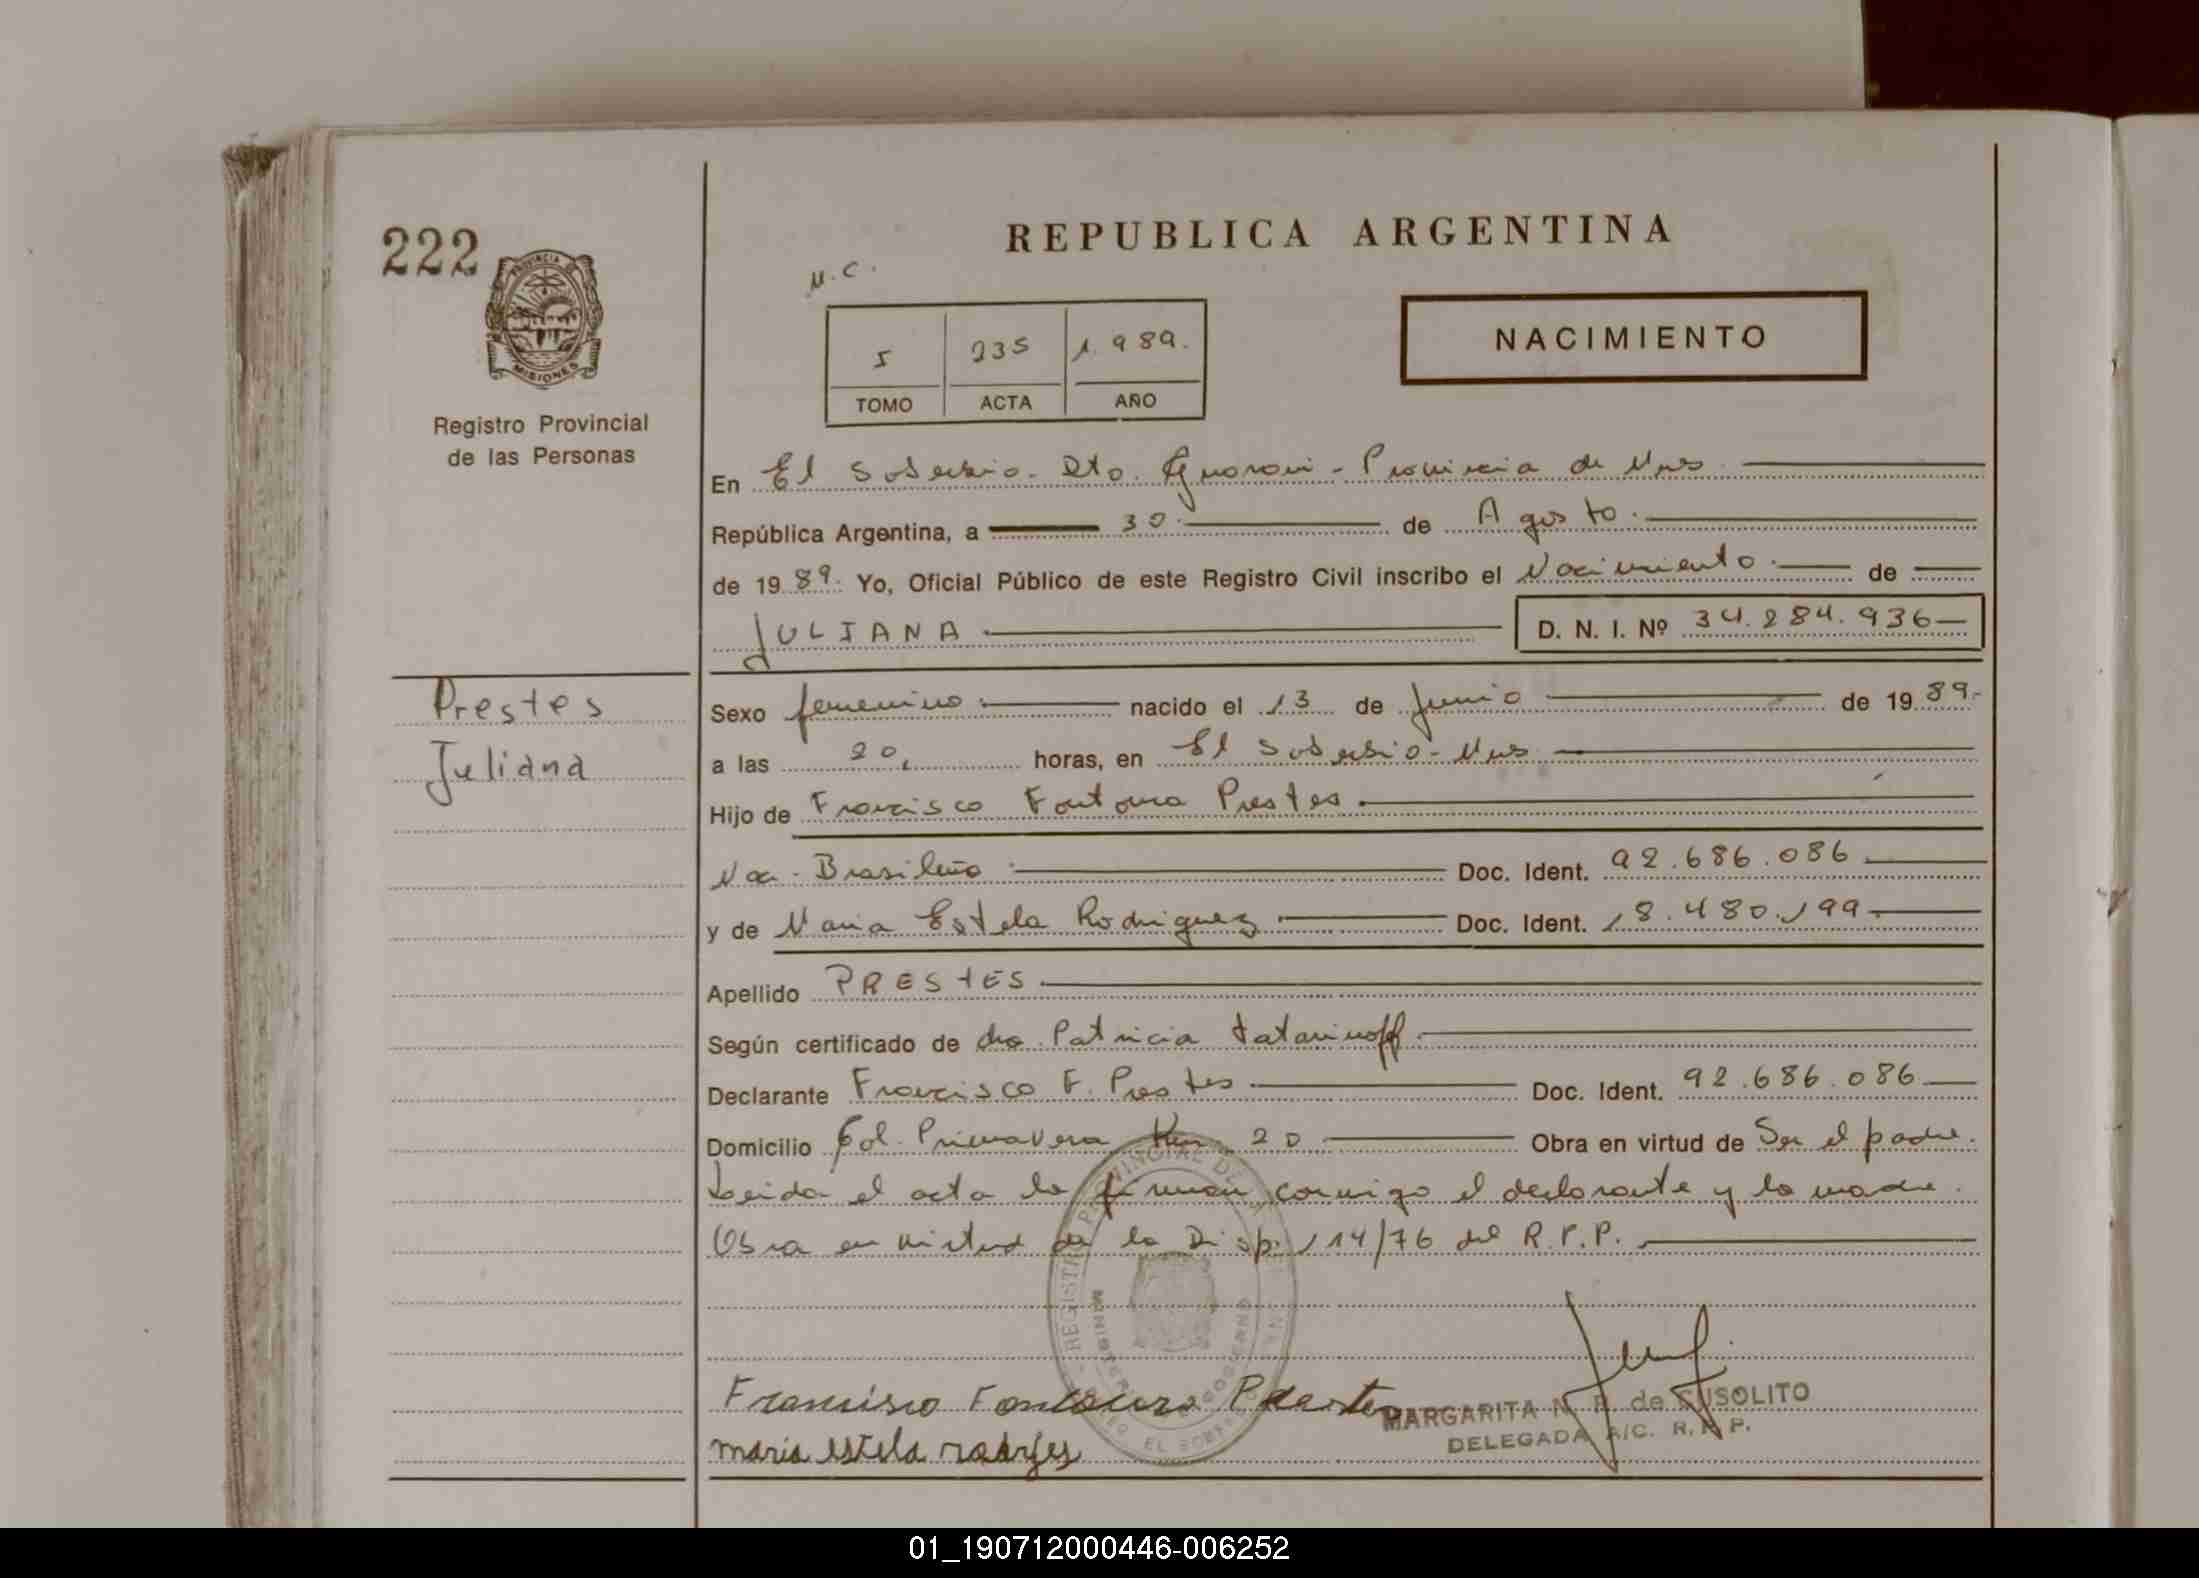 222
PROVINCIA DE
MISIONES
Registro Provincial
de las Personas
REPUBLICA ARGENTINA
5 235 1.989.
TOMO ACTA AÑO
NACIMIENTO
En El Soberbio. Dto. Guarani - Provincia de Mnes.
República Argentina, a 30 de Agosto.
de 19 89. Yo, Oficial Público de este Registro Civil inscribo el Nacimiento de
JULIANA D. N. I. Nº 34.284.936
Prestes
Juliana
Sexo femenino nacido el 13 de Junio de 19 89.
a las 20, horas, en El Soberbio - Mnes
Hijo de Francisco Fontoura Prestes
Nac. Brasileño Doc. Ident. 92.686.086
y de Maria Estela Rodriguez Doc. Ident. 18.480.199
Apellido PRESTES
Según certificado de dra. Patricia Tatarinoff
Declarante Francisco F. Prestes Doc. Ident. 92.686.086
Domicilio Col. Primavera Km 20 Obra en virtud de Ser el padre.
Leida el acta la firman conmigo el declarante y la madre.
Obra en virtud de la Disp. 114/76 del R.P.P.
Francisco Prestes
maria estela
MARGARITA de SUSOLITO
DELEGADA A/C. R. P. P.
01_190712000446-006252